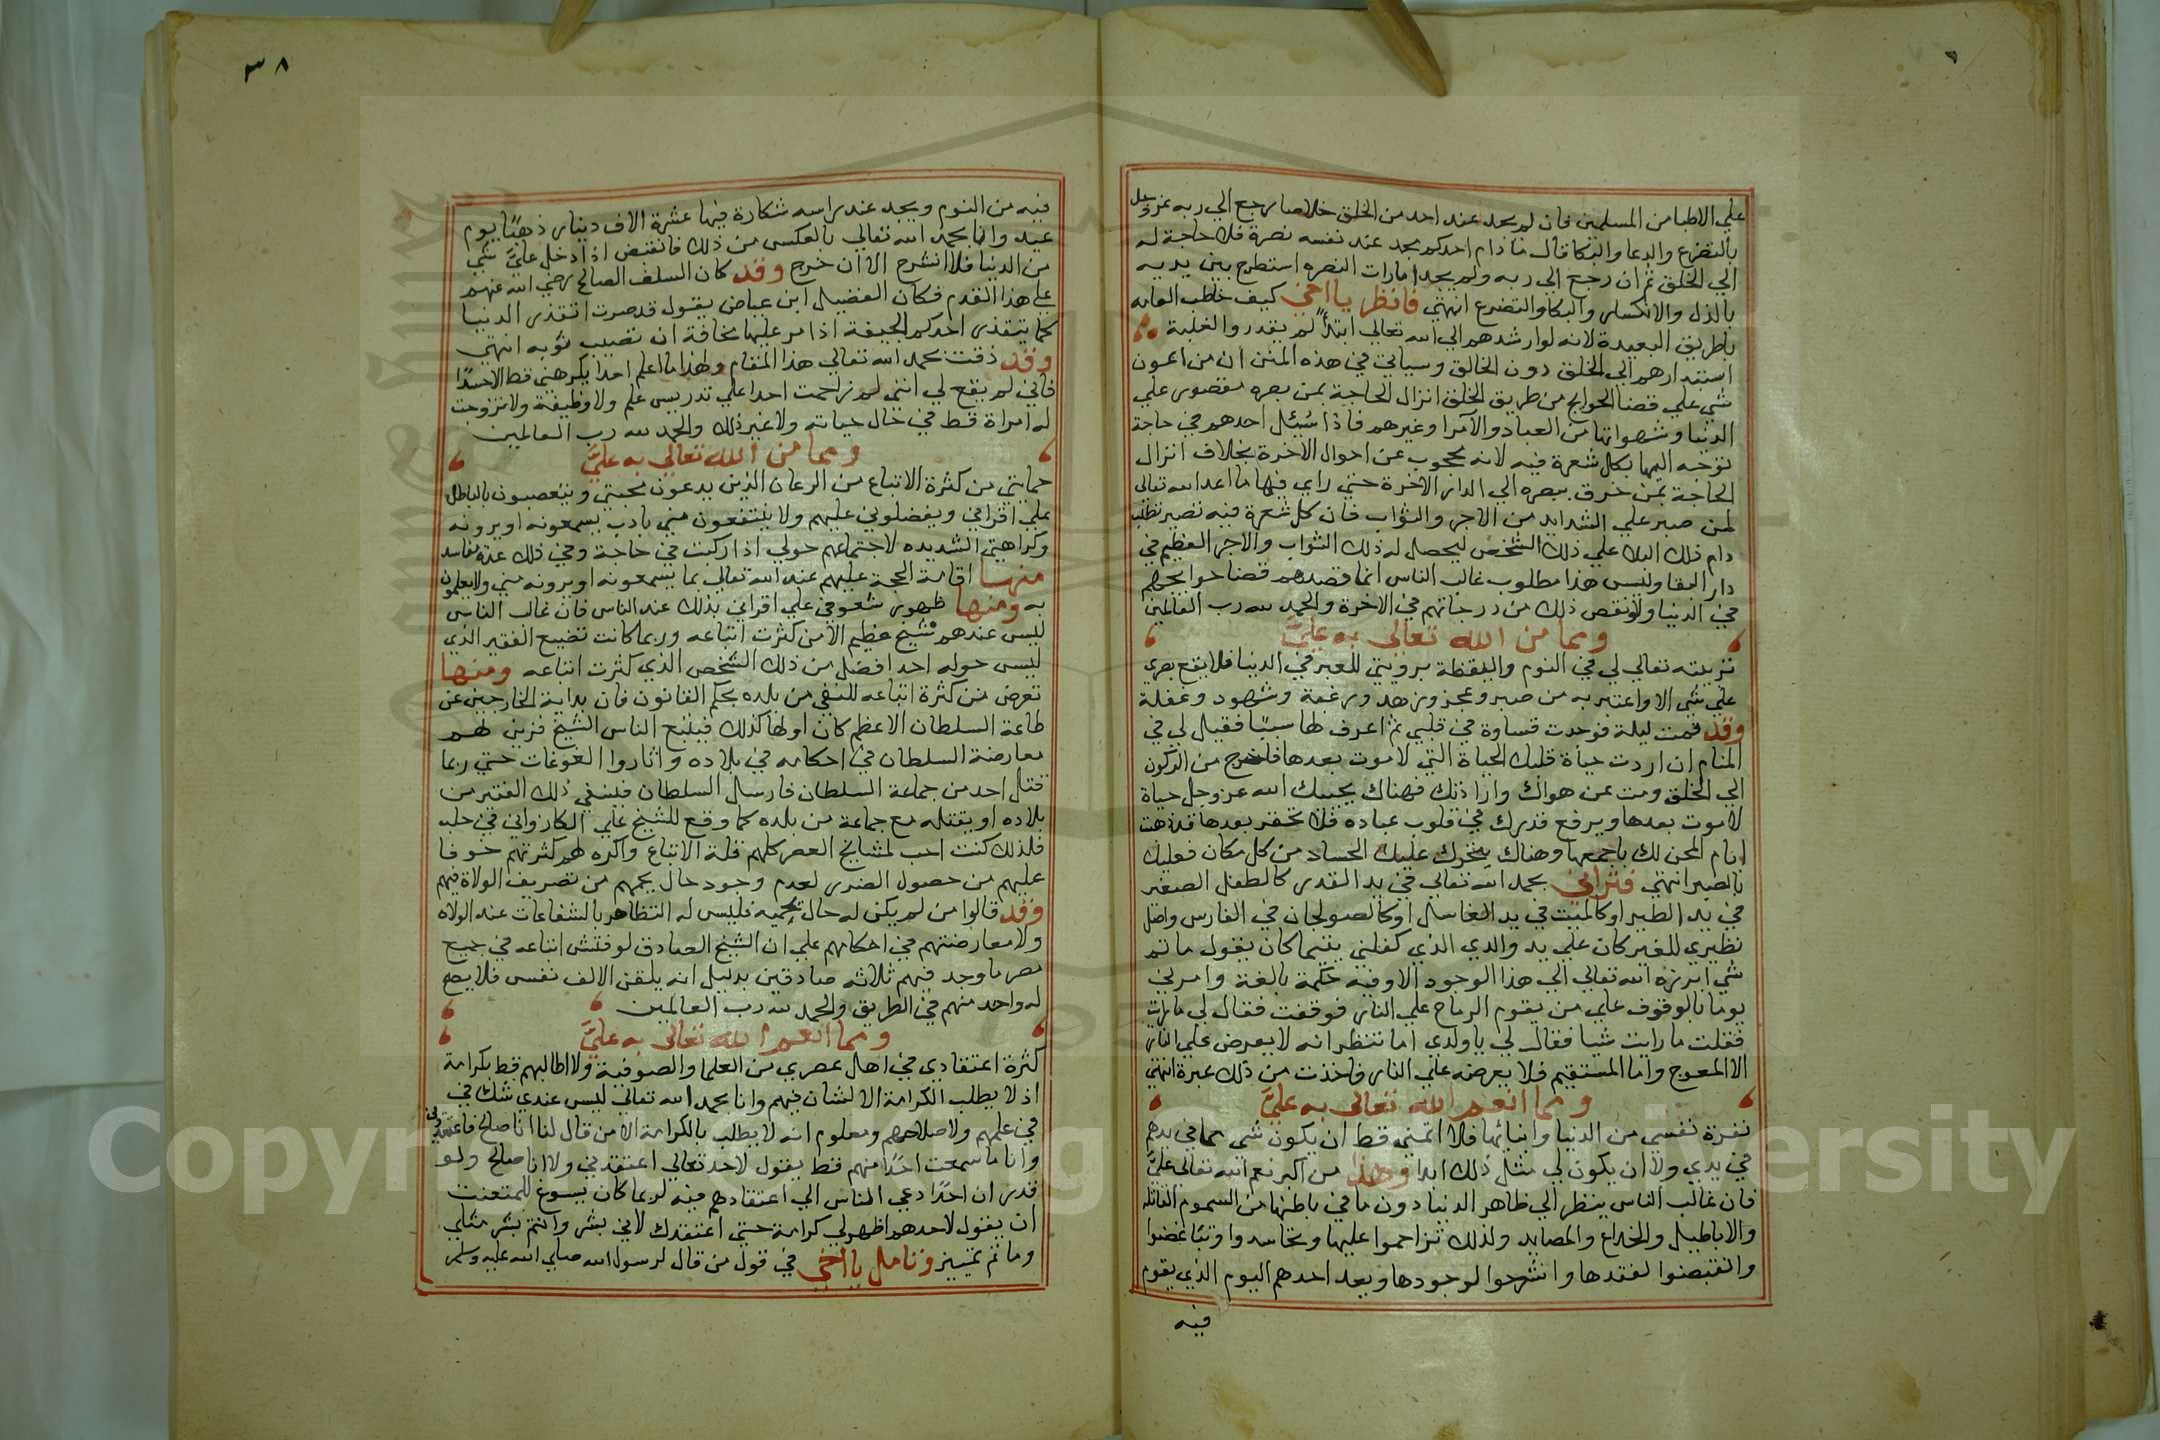 علي الاطبا من المسلمين فان لم يجد عند احد من الخلق خلاصا رجع الي ربه عز وجل
بالتضرع والدعا والبكا قال مادام احدكم يجد عند نفسه نصرة فلا حاجة له
الي الخلق ثم ان رجع الي ربه ولم يجد امارات النصره استطرح بين يديه
بالذل والانكسار والبكا والتضرع انتهي فانظر يا اخي كيف خاطب العامه
بالطريق البعيدة لانه لو ارشدهم الي الله تعالي ابتدأ لم يقدروا لغلبة
استنادهم الي الخلق دون الخالق وسياتي في هذه المنن ان من اعون
شي علي قضا الحوايج من طريق الخلق انزال الحاجة بمن بصره مقصور علي
الدنيا وشهواتها من العباد والامرا وغيرهم فاذا سُئل احدهم في حاجة
توجه اليها بكل شعرة فيه لانه محجوب عن احوال الاخرة بخلاف انزال
الحاجة بمن خرق بصره الي الدار الاخرة حتي راي فيها ما اعد الله تعالي
لمن صبر علي الشدايد من الاجر والثواب فان كل شعرة فيه تصير تطلب
دام ذلك البلا علي ذلك الشخص ليحصل له ذلك الثواب والاجر العظيم في
دار البقا وليس هذا مطلوب غالب الناس انما قصدهم قضا حوايجهم
في الدنيا ولو نقص ذلك من درجاتهم في الاخرة والحمد لله رب العالمين
ومما من الله تعالي به عليَّ
تربيته تعالي لي في النوم واليقظة برويتي للعبر في الدنيا فلا يقع بصري
علي شي الا واعتبر به من صبر وعجز وزهد ورغبة وشهود وغفلة
وقد قمت ليلة فوجدت قساوة في قلبي لم اعرف لها سببًا فقيل لي في
المنام ان اردت حياة قلبك الحياة التي لا موت بعدها فاخرج من الركون
الي الخلق ومت عن هواك وارادتك فهناك يحييك الله عز وجل حياة
لا موت بعدها ويرفع قدرك في قلوب عباده فلا تحقر بعدها
ايام المحن لك باجمعها وهناك يتحرك عليك الحساد من كل مكان فعليك
بالصبر انتهي فتراني بحمد الله تعالي في يد القدر كالطفل الصغير
في يد الظير او كالميت في يد الغاسل او كالصولجان في الفارس واصل
نظيري للغير كان علي يد والدي الذي كفلني يتيما كان يقول ما ثم
شي ابرزه الله تعالي الي هذا الوجود الا وفيه حكمة بالغة وامرني
يوما بالوقوف علي من يقوم الرماح علي النار فوقفت فقال لي ما رايت
فقلت ما رايت شيا فقال لي يا ولدي اما تنظر انه لا يعرض علي النار
الا المعوج واما المستقيم فلا يعرضه علي النار فاخذت من ذلك عبرة انتهي
ومما انعم الله تعالي به عليَّ
نفرة نفسي من الدنيا وابنايها فلا اتمني قط ان يكون شي مما في يدهم
في يدي ولا ان يكون لي مثل ذلك ابدا وهذا من اكبر نعم الله تعالي عليَّ
فان غالب الناس ينظر الي ظاهر الدنيا دون ما في باطنها من السموم القاتلة
والاباطيل والخداع والمصايد ولذلك تزاحموا عليها وتحاسدوا وتباغضوا
وانقبضوا لفقدها وانشرحوا لوجودها ويعد احدهم اليوم الذي يقوم
فيه
٣٨
فيه من النوم ويجد عند راسه شكارة فيها عشرة الاف دينار ذهبًا يوم
عيد وانا بحمد الله تعالي بالعكس من ذلك فانقبض اذا دخل عليَّ شي
من الدنيا فلا انشرح الا ان خرج وقد كان السلف الصالح رضي الله عنهم
علي هذا القدم فكان الفضيل ابن عياض يقول قد صرت اتقذر الدنيا
كما يتقذر احدكم الجيفة اذا مر عليها مخافة ان تصيب ثوبه انتهي
وقد ذقت بحمد الله تعالي هذا المقام ولهذا ما اعلم احدا يكرهني قط الا حسدًا
فاني لم يقع لي انني لم زاحمت احدا علي تدريس علم ولا وظيفة ولا تزوجت
له امراة قط في حال حياته ولا غير ذلك والحمد لله رب العالمين
ومما من الله تعالي به عليَّ
حمايتي من كثرة الاتباع من الرعان الذين يدعون محبتي ويتعصبون بالباطل
علي اقراني ويفضلوني عليهم ولا ينتفعون مني بادب يسمعونه او يرونه
وكراهتي الشديده لاجتماعهم حولي اذا ركبت في حاجة وفي ذلك عدة مفاسد
منها اقامة الحجة عليهم عند الله تعالي بما يسمعونه او يرونه مني ولا يعلمون
به ومنها ظهور شفوفي علي اقراني بذلك عند الناس فان غالب الناس
ليس عندهم شيخ عظيم الا من كثرت اتباعه وربما كانت تضييع الفقير الذي
ليس حوله احد افضل من ذلك الشخص الذي كثرت اتباعه ومنها
تعرض من كثرة اتباعه للنفي من بلده بحكم القانون فان بداية الخارجين عن
طاعة السلطان الاعظم كان اولها كذلك فيتبع الناس الشيخ فزين لهم
معارضة السلطان في احكامه في بلاده واثاروا الغوغات حتي ربما
قتل احد من جماعة السلطان فارسل السلطان فينفي ذلك الفقير من
بلاده او يقتله مع جماعة من بلده كما وقع للشيخ علي الكازواني في حلب
فلذلك كنت احب لمشايخ العصر كلهم قلة الاتباع واكره لهم كثرتهم خوفا
عليهم من حصول الضرر لعدم وجود حال يحميهم من تصريف الولاة فيهم
وقد قالوا من لم يكن له حال يحميه فليس له التظاهر بالشفاعات عند الولاه
ولا معارضتهم في احكامهم علي ان الشيخ الصادق لو فتش اتباعه في جميع
مصر ما وجد فيهم ثلاثه صادقين بدليل انه يلقن الالف نفس فلا يصح
له واحد منهم في الطريق والحمد لله رب العالمين
ومما انعم الله تعالي به عليَّ
كثرة اعتقادي في اهل عصري من العلما والصوفية ولا اطالبهم قط بكرامة
اذ لا يطلب الكرامة الا لشان فيهم وانا بحمد الله تعالي ليس عندي شك في
في علمهم ولا صلاحهم ومعلوم انه لا يطلب بالكرامة الا من قال لنا انا صالح فاعتقدوني
وانا ما سمعت احدًا منهم قط يقول لاحد تعالي اعتقدني ولا انا صالح ولو
قدر ان احدًا دعي الناس الي اعتقادهم فيه لربما كان يسوغ للمتعنت
ان يقول لاحدهم اظهر لي كرامة حتي اعتقدك لاني بشر وانتم بشر مثلي
وما ثم تمييز وتامل يا اخي في قول من قال لرسول الله صلي الله عليه وسلم
Copyright © King Saud University